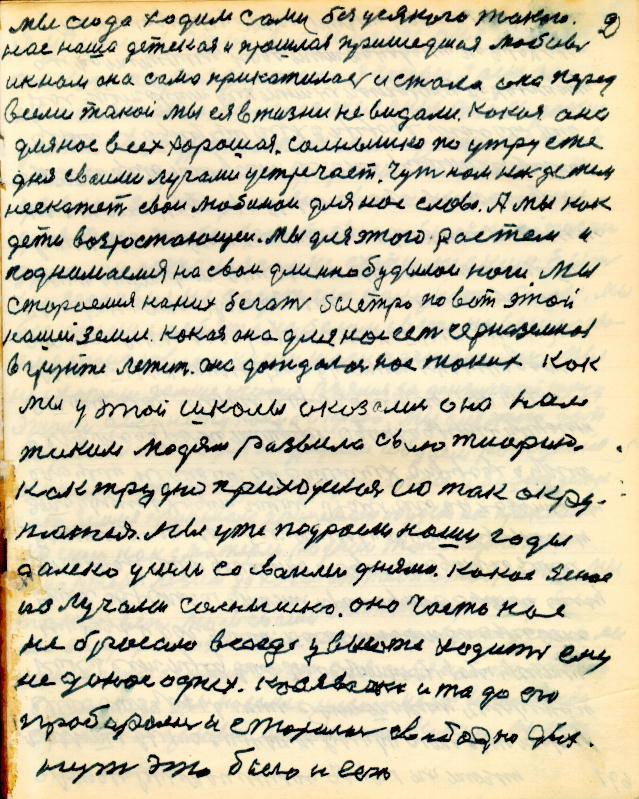 2
мы сюда ходим сами, без усякого такого.
нас наша детская и прошлая пришедшая любовь
и к нам она само прикатилась и стала она перед
всеми такой мы ея в жизни не видали. Какая она
для нас всех хорошая. солнышко по утру эти
дня своими лучами устречает. Чуть нам не
нескажет свои любимои для нас слово. А мы как
дети возростающеи. мы для этого растем и
поднимаемся на свои длинно будылои ноги. Мы
стараемся на них бегать быстро по вот этой
нашей земли. Какая она для нас есть черназемная
в грунте лежит. она дождалася нас таких как
мы у этой школы оказалися она нам
таким людям развила свою тиорию.
Как трудно приходится
Мы уже подросли наши годы
далеко ушли со своими днями. Какое ясное
из лучами солнышко. оно часть нас
не бросало всегда у высоте ходить ему
не до нас одних. и та до его
пробрались и старалась свободно
нуть это было и есть